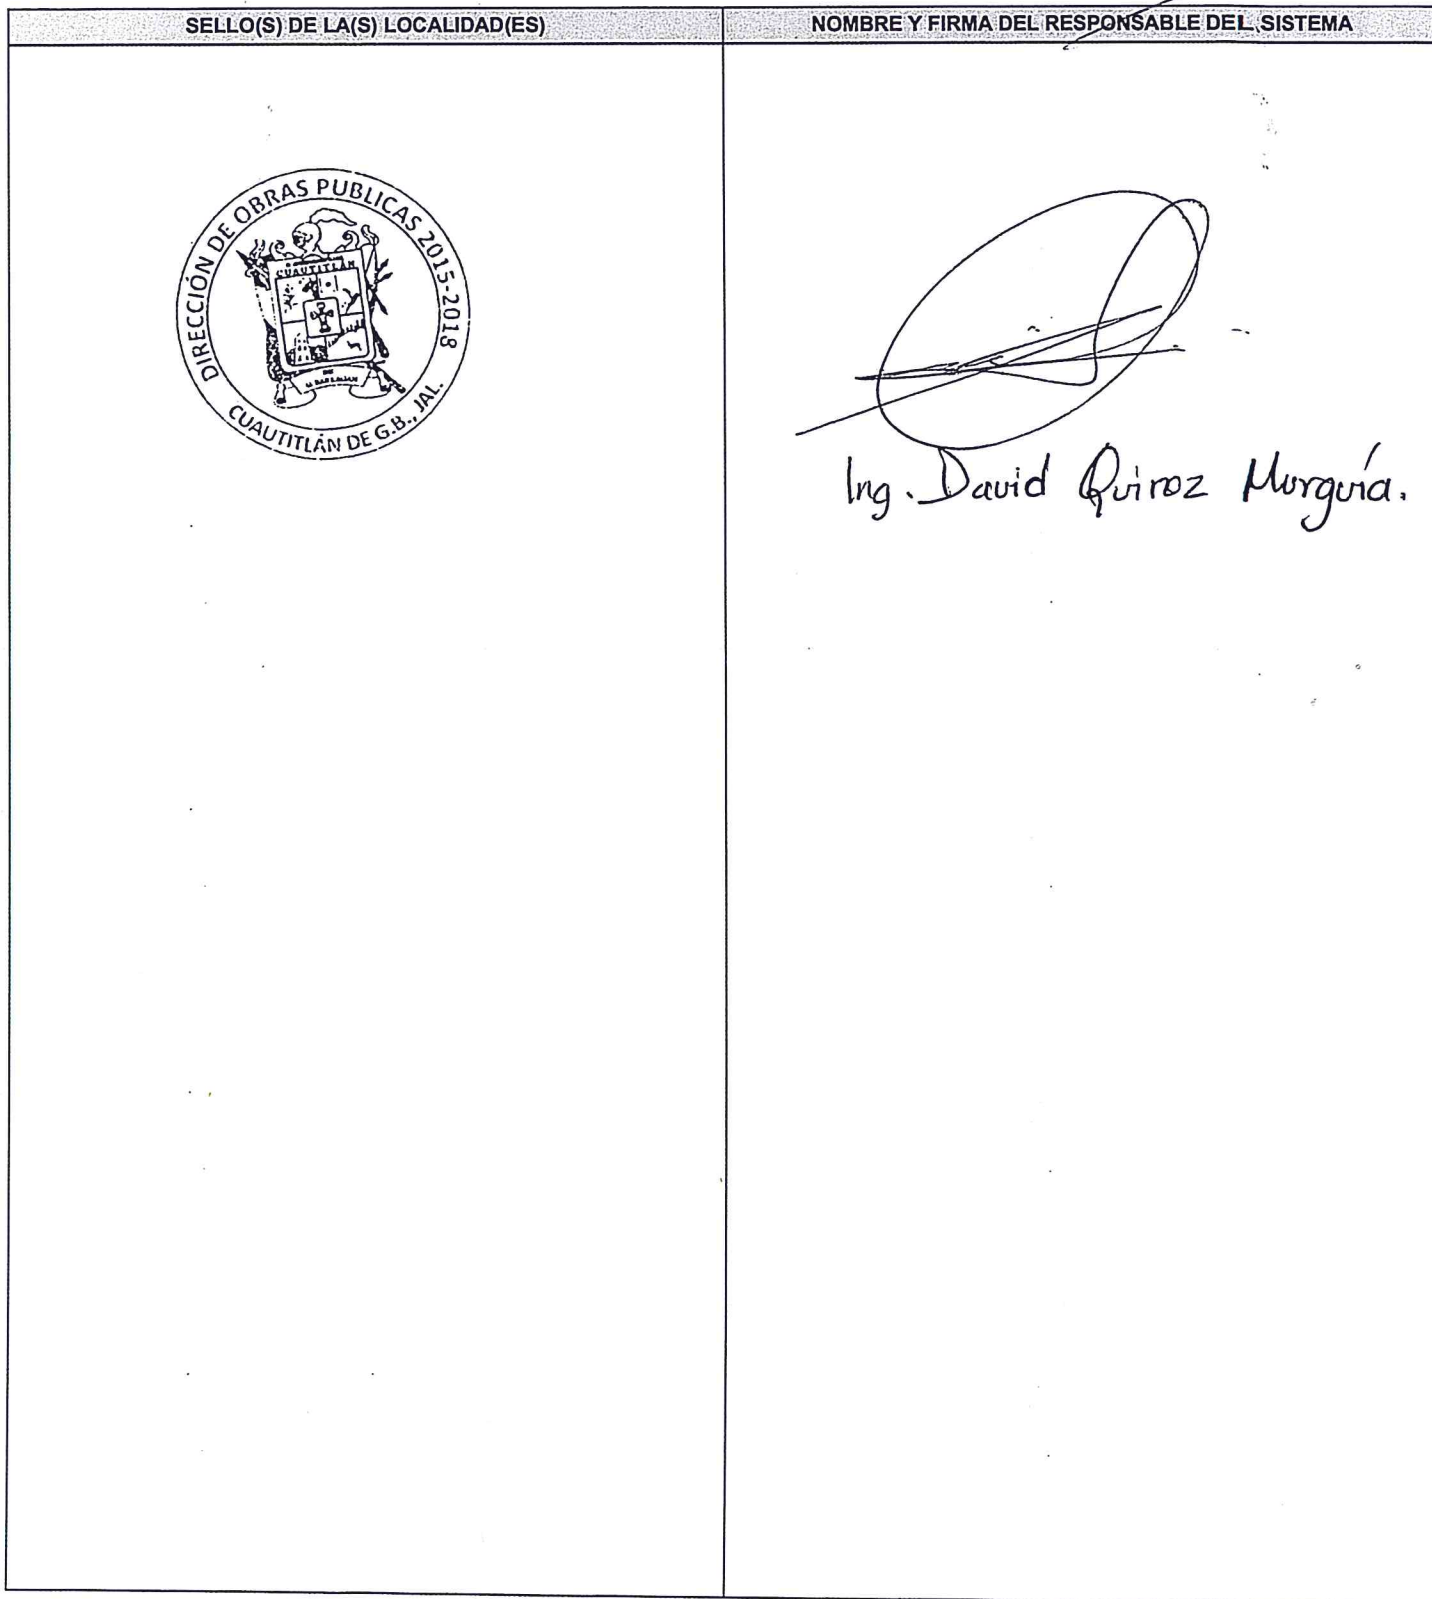 SELLO(S) DE LA(S) LOCALIDAD(ES)
NOMBRE Y FIRMA DEL RESPONSABLE DEL SISTEMA
DIRECCIÓN DE OBRAS PUBLICAS 2015-2018
CUAUTITLÁN
CUAUTITLÁN DE G.B., JAL.
Ing. David Quiroz Murguía.